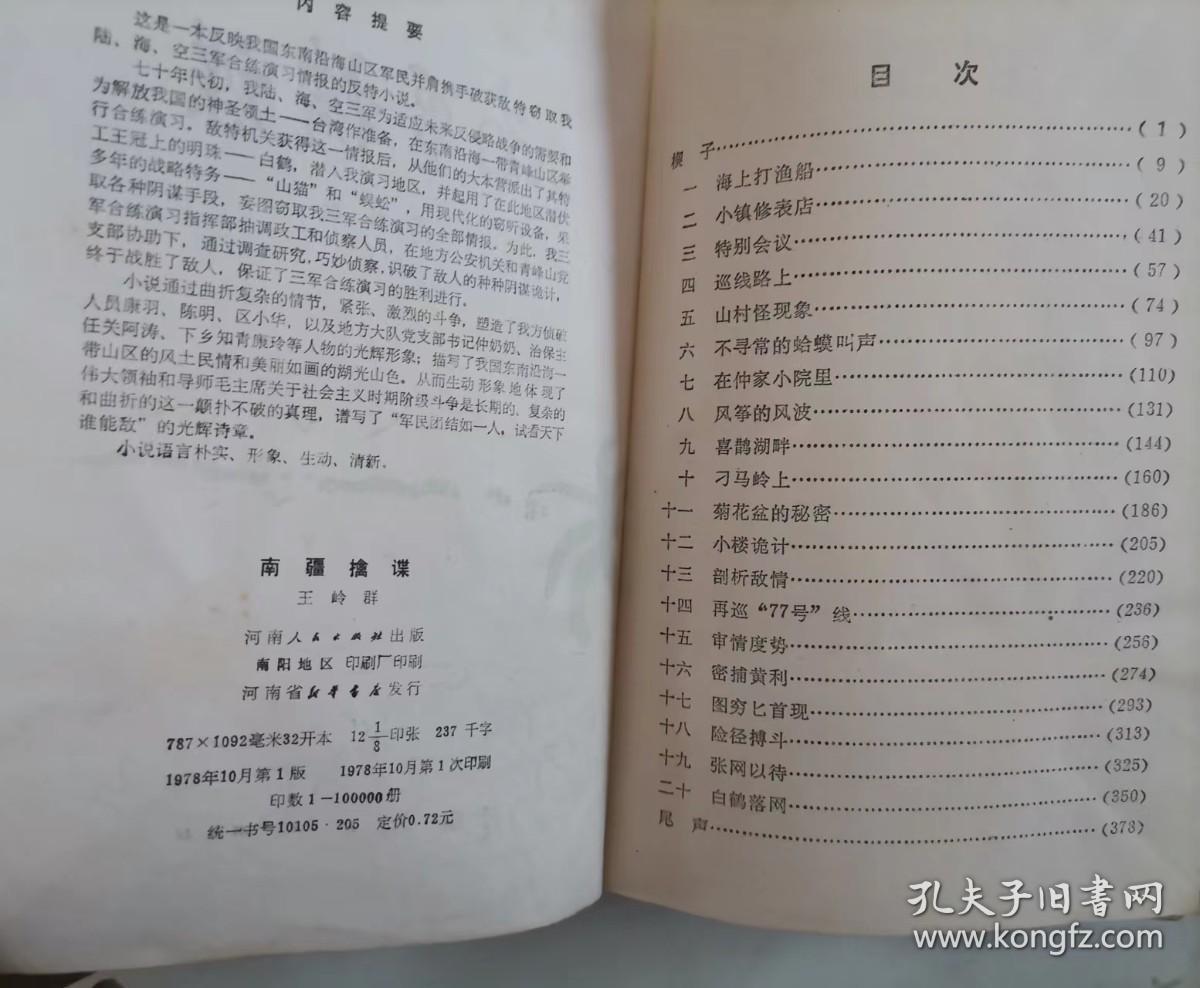 内容提要
这是一本反映我国东南沿海山区军民并肩携手破获敌特窃取我
陆、海、空三军合练演习情报的反特小说。
七十年代初，我陆、海、空三军为适应未来反侵略战争的需要和
为解放我国的神圣领土——台湾作准备，在东南沿海一带青峰山区举
行合练演习。敌特机关获得这一情报后，从他们的大本营派出了其特
工王冠上的明珠——白鹤，潜入我演习地区，并起用了在此地区潜伏
多年的战略特务——“山猫”和“蜈蚣”，用现代化的窃听设备，采
取各种阴谋手段，妄图窃取我三军合练演习的全部情报。为此，我三
军合练演习指挥部抽调政工和侦察人员，在地方公安机关和青峰山党
支部协助下，通过调查研究，巧妙侦察，识破了敌人的种种阴谋诡计，
终于战胜了敌人，保证了三军合练演习的胜利进行。
小说通过曲折复杂的情节，紧张、激烈的斗争，塑造了我方侦破
人员康羽、陈明、区小华，以及地方大队党支部书记仲奶奶、治保主
任关阿涛、下乡知青康玲等人物的光辉形象；描写了我国东南沿海一
带山区的风土民情和美丽如画的湖光山色。从而生动形象地体现了
伟大领袖和导师毛主席关于社会主义时期阶级斗争是长期的、复杂的
和曲折的这一颠扑不破的真理，谱写了“军民团结如一人，试看天下
谁能敌”的光辉诗章。
小说语言朴实、形象、生动、清新。
南疆擒谍
王岭群
河南人民出版社出版
南阳地区印刷厂印刷
河南省新华书店发行
787×1092毫米32开本 12 1/8印张 237千字
1978年10月第1版 1978年10月第1次印刷
印数1—100000册
统一书号10105·205 定价0.72元
目次
楔子……(1)
一 海上打渔船……(9)
二 小镇修表店……(20)
三 特别会议……(41)
四 巡线路上……(57)
五 山村怪现象……(74)
六 不寻常的蛤蟆叫声……(97)
七 在仲家小院里……(110)
八 风筝的风波……(131)
九 喜鹊湖畔……(144)
十 刁马岭上……(160)
十一 菊花盆的秘密……(186)
十二 小楼诡计……(205)
十三 剖析敌情……(220)
十四 再巡“77号”线……(236)
十五 审情度势……(256)
十六 密捕黄利……(274)
十七 图穷匕首现……(293)
十八 险径搏斗……(313)
十九 张网以待……(325)
二十 白鹤落网……(350)
尾声……(378)
孔夫子旧书网
www.kongfz.com